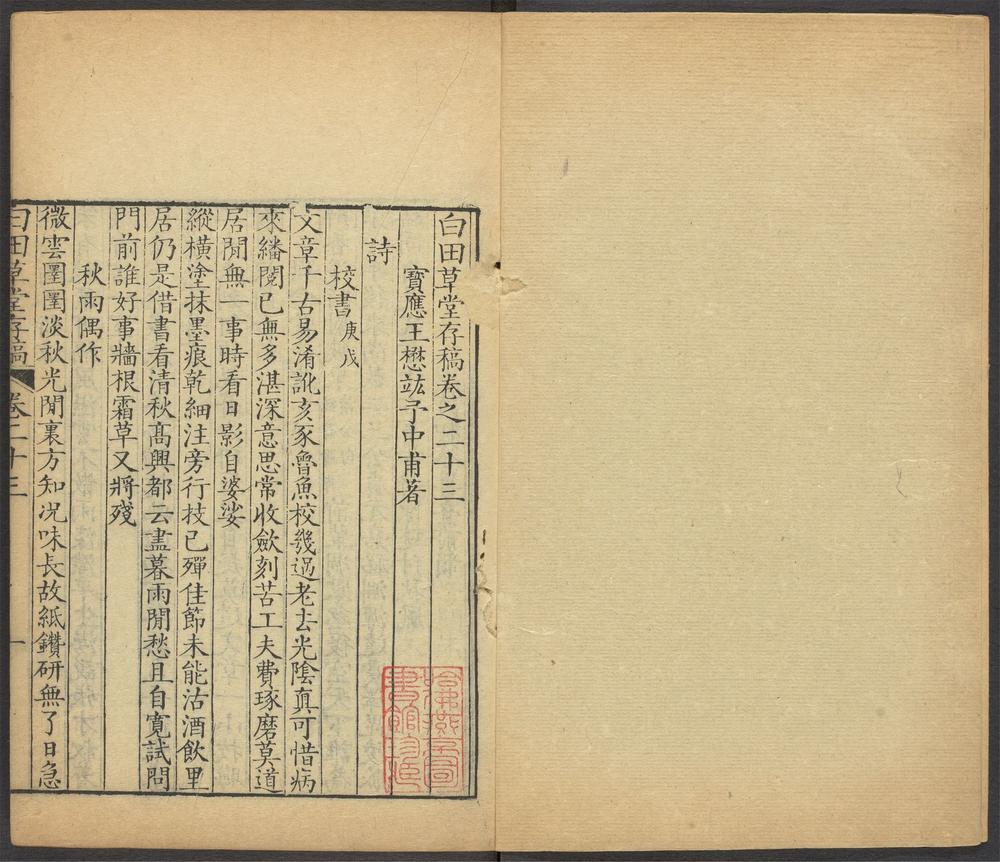 白田草堂存稿卷之二十三
寶應王懋竑予中甫著
詩
校書庚戌
文章千古易淆訛亥豕魯魚校幾過老去光陰真可惜病
來繙閱已無多湛深意思常收斂刻苦工夫費琢磨莫道
居閒無一事時看日影自婆娑
縱橫塗抹墨痕乾細注旁行技已殫佳節未能沽酒飲里
居仍是借書看清秋高興都云盡暮雨閒愁且自寬試問
門前誰好事牆根霜草又將殘
秋雨偶作
微雲圉圉淡秋光閒裏方知况味長故紙鑽研無了日急
白田草堂存稿 卷二十三 一
哈佛燕京圖
書館珍藏